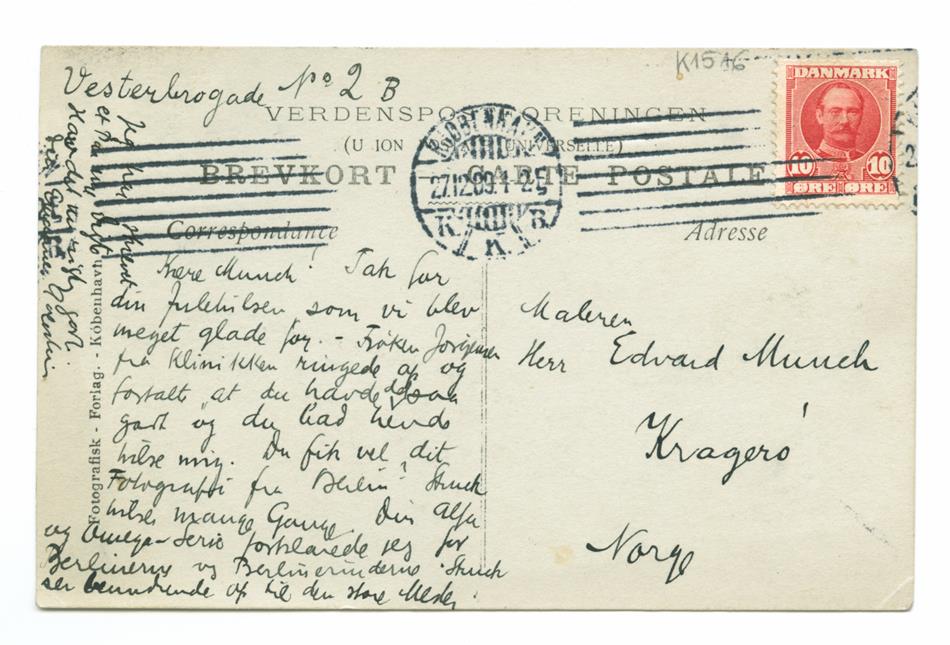 K1516
Vesterbrogade No 2 B
VERDENSPO ORENINGEN
(U ION UNIVERSELLE)
BREVKORT CARTE POSTALE
KJØBENHAVN
27.12.09. 1-2
K K B
DANMARK
10 10
ØRE ØRE
Correspondance
Adresse
Kære Munch! Tak for
din Julehilsen, som vi blev
meget glade for. - Frøken Jørgensen
fra Klinikken ringede op og
fortalte at du havde det saa
godt og du bad hende
hilse mig. Du fik vel dit
Fotografi fra Berlin? Struck
hilser mange Gange. Din Alfa
og Omega-Serie forklarede jeg for
Berlinerne og Berlinerinderne. Struck
ser beundrende op til den store Mester.
Jeg har
Maleren
Herr Edvard Munch
Kragerø
Norge
Fotografisk - Forlag. - Köbenhavn